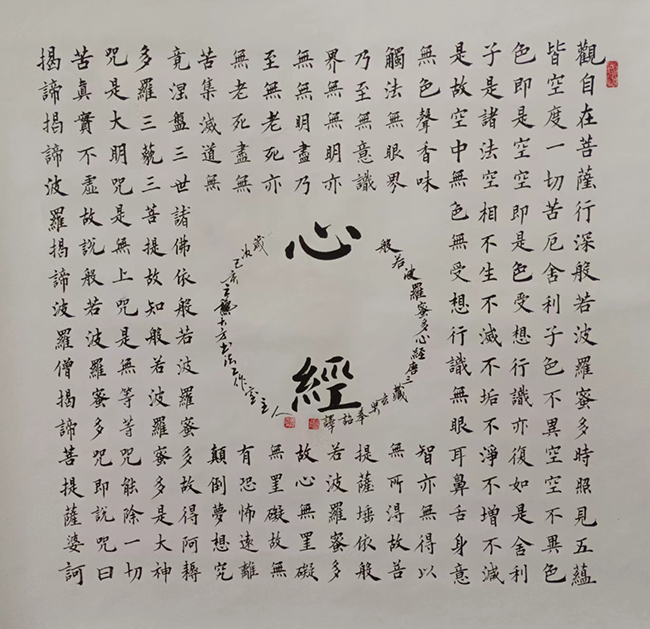 觀自在菩薩行深般若波羅蜜多時照見五蘊
皆空度一切苦厄舍利子色不異空空不異色
色即是空空即是色受想行識亦復如是舍利
子是諸法空相不生不滅不垢不淨不增不減
是故空中無色無受想行識無眼耳鼻舌身意
無色聲香味
觸法無眼界
乃至無意識
界無無明亦
無無明盡乃
至無老死亦
無老死盡無
苦集滅道無
智亦無得以
無所得故菩
提薩埵依般
若波羅蜜多
故心無罣礙
無罣礙故無
有恐怖遠離
顛倒夢想究
竟涅盤三世諸佛依般若波羅蜜多故得阿耨
多羅三藐三菩提故知般若波羅蜜多是大神
咒是大明咒是無上咒是無等等咒能除一切
苦真實不虛故說般若波羅蜜多咒即說咒曰
揭諦揭諦波羅揭諦波羅僧揭諦菩提薩婆訶
心經
般若波羅蜜多心經唐三藏玄奘奉詔譯
歲次己亥書法工作室主人